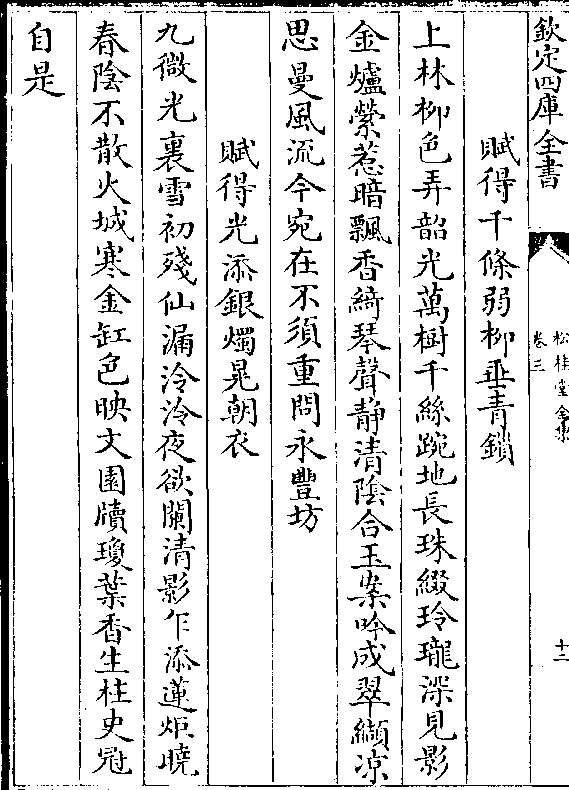 欽定四庫全書
松桂堂全集
卷三
十三
賦得千條弱柳垂青鎖
上林柳色弄韶光萬樹千絲踠地長珠綴玲瓏深見影
金爐縈惹暗飄香綺琴聲静清陰合玉案吟成翠纈凉
思曼風流今宛在不須重問永豐坊
賦得光添銀燭晃朝衣
九微光裏雪初殘仙漏泠泠夜欲闌清影乍添蓮炬曉
春陰不散火城寒金缸色映文園牘瓊葉香生柱史冠
自是